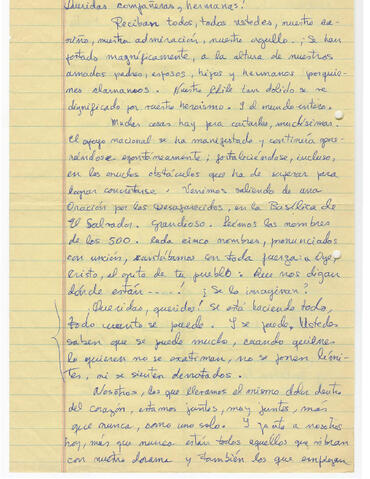 Queridas compañeras, hermanas!
Reciban todos, todas ustedes, nuestro ca-
riño, nuestra admiración, nuestro orgullo. ¡Se han
portado magníficamente, a la altura de nuestros
amados padres, esposos, hijos y hermanos por quie-
nes clamamos. Nuestro Chile tan dolido se ve
dignificado por vuestro heroísmo. Y el mundo entero.
Muchas cosas hay para contarles, muchísimas!
El apoyo nacional se ha manifestado y continúa gene-
rándose espontáneamente; fortaleciéndose, incluso,
en los muchos obstáculos que ha de superar para
lograr concretarse. Venimos saliendo de una
Oración por los Desaparecidos, en la Basílica de
El Salvador. Grandioso. Leímos los nombres
de los 500. Cada cinco nombres, pronunciados
con unción, escuchábamos con toda fuerza: Oye
Cristo, el grito de tu pueblo: Que nos digan
dónde están ----! ¿Se lo imaginan?
¡Queridas, queridos! Se está haciendo todo,
todo cuanto se puede. Y se puede. Ustedes
saben que se puede mucho, cuando quienes
lo quieren no se extiman, no se ponen lími-
tes, ni se sienten derrotados.
Nosotros, los que llevamos el mismo dolor dentro
del corazón, estamos juntos, muy juntos, más
que nunca, como uno solo. Y junto a nosotros
hoy, más que nunca están todos aquellos que vibran
con nuestro drama y también los que empiezan